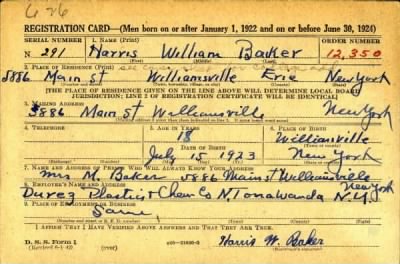 626
REGISTRATION CARD—(Men born on or after January 1, 1922 and on or before June 30, 1924)
SERIAL NUMBER 1. NAME (Print) ORDER NUMBER
N 291 Harris William Baker 12,350
(First) (Middle) (Last)
2. PLACE OF RESIDENCE (Print)
5886 Main St Williamsville Erie New York
(THE PLACE OF RESIDENCE GIVEN ON THE LINE ABOVE WILL DETERMINE LOCAL BOARD
JURISDICTION; LINE 2 OF REGISTRATION CERTIFICATE WILL BE IDENTICAL)
3. MAILING ADDRESS
5886 Main St Williamsville New York
4. TELEPHONE 5. AGE IN YEARS 6. PLACE OF BIRTH
18 Williamsville
DATE OF BIRTH
July 15 1923 New York
7. NAME AND ADDRESS OF PERSON WHO WILL ALWAYS KNOW YOUR ADDRESS
Mrs M. Baker 5886 Main St Williamsville New York
8. EMPLOYER'S NAME AND ADDRESS
Durez Plastics & Chem Co N. Tonawanda N.Y.
9. PLACE OF EMPLOYMENT OR BUSINESS
Same
I AFFIRM THAT I HAVE VERIFIED ABOVE ANSWERS AND THAT THEY ARE TRUE.
D. S. S. Form 1
Harris W. Baker